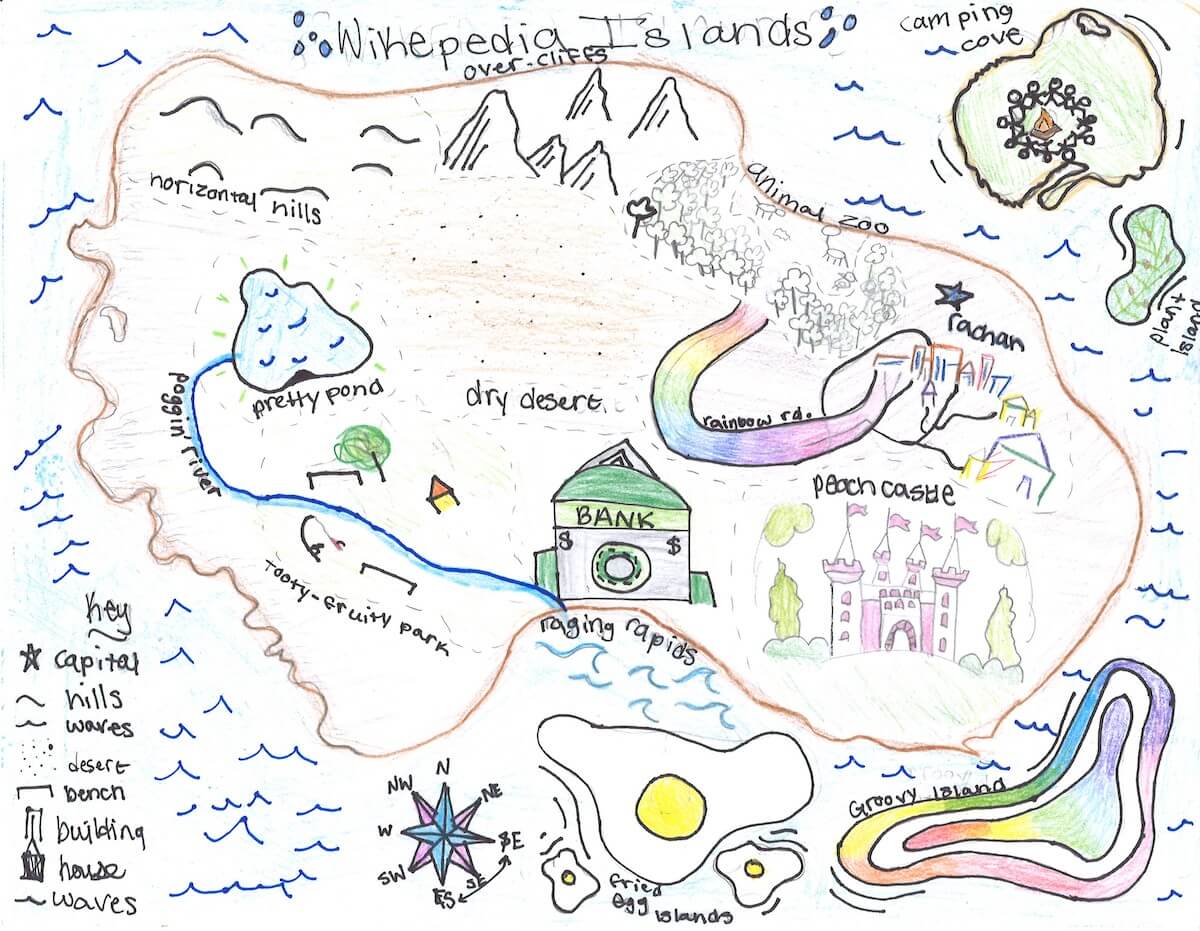 Wikepedia Islands
over-cliffs
camping
cove
horizontal hills
animal zoo
plant
Island
rachan
pretty pond
poggin' river
dry desert
rainbow rd.
peach castle
BANK
$ $
Tooty-fruity park
raging rapids
Key
capital
hills
waves
desert
bench
building
house
waves
N
NW
NE
W
E
SW
SE
S
fried
egg islands
Groovy Island